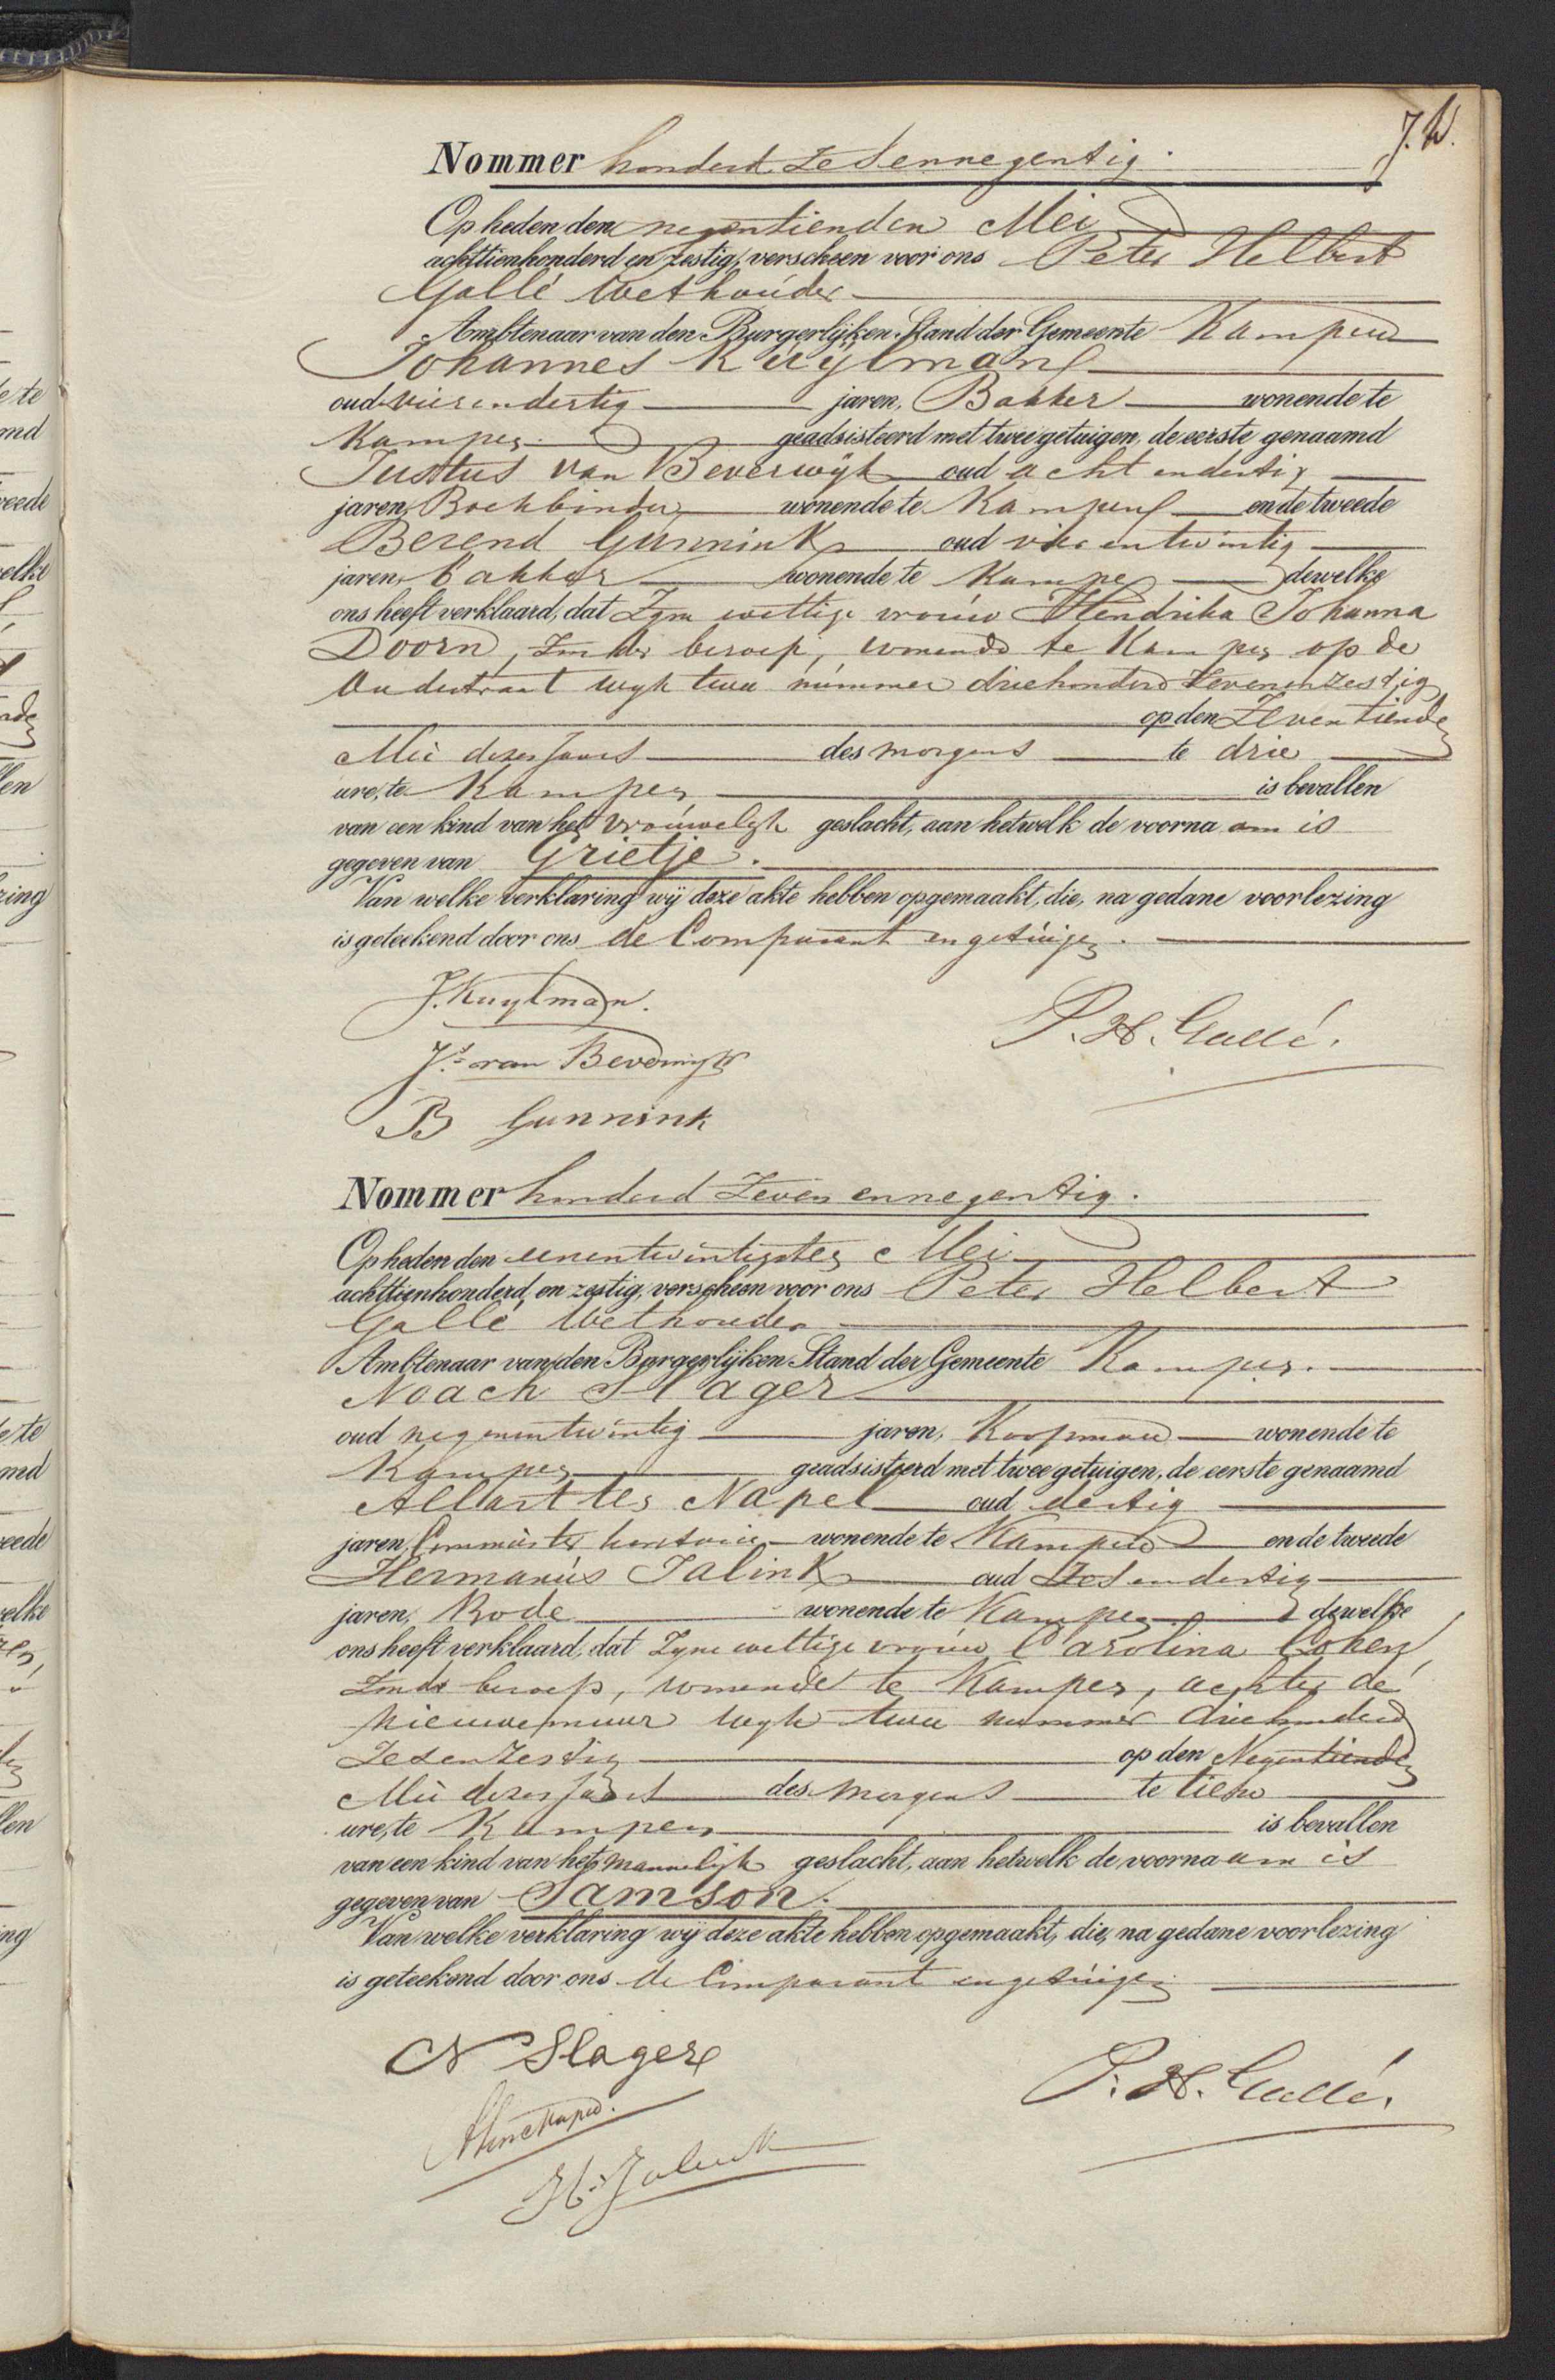 J. W.
Nommer honderd Zesennegentig.
Op heden den negentienden Mei
achttienhonderd en zestig, verscheen voor ons Peter Helbert
Gallé Wethouder
Ambtenaar van den Burgerlijken Stand der Gemeente Kampen
Johannes Kuijlman
oud vierendertig jaren, Bakker wonende te
Kampen geadsisteerd met twee getuigen, de eerste genaamd
Justus van Beverwijk oud acht endertig
jaren, Boekbinder wonende te Kampen en de tweede
Berend Gunnink oud vier entwintig
jaren, bakker wonende te Kampen dewelke
ons heeft verklaard, dat Zyne wettige vrouw Hendrika Johanna
Doorn, Zonder beroep, wonende te Kampen op de
Oudestraat wyk twee nummer driehonderd Zevenenzestig
op den Zeventienden
Mei dezes Jaars des morgens te drie
ure, te Kampen is bevallen
van een kind van het vrouwelyk geslacht, aan hetwelk de voorna am is
gegeven van Grietje.
Van welke verklaring wij deze akte hebben opgemaakt, die, na gedane voorlezing
is geteekend door ons de Comparant en getuigen.
J. Kuylman.
P. H. Gallé.
Js. van Beverwijk
B Gunnink
Nommer honderd Zeven ennegentig.
Op heden den eenentwintigsten Mei
achttienhonderd en zestig, verscheen voor ons Peter Helbert
Gallé Wethouder
Ambtenaar van den Burgerlijken Stand der Gemeente Kampen.
Noach Slager
oud negenentwintig jaren, Koopman wonende te
Kampen geadsisteerd met twee getuigen, de eerste genaamd
Allart ten Napel oud dertig
jaren, Commies ter secretarie wonende te Kampen en de tweede
Hermanus Jalink oud Zesendertig
jaren, Bode wonende te Kampen dewelke
ons heeft verklaard, dat Zyne wettige vrouw Carolina Cohen,
Zonder beroep, wonende te Kampen, achter de
Nieuwemuur wyk twee nummer driehonderd
Zesenzestig op den Negentienden
Mei dezes Jaars des morgens te tien
ure, te Kampen is bevallen
van een kind van het mannelyk geslacht, aan hetwelk de voorna am is
gegeven van Samson.
Van welke verklaring wij deze akte hebben opgemaakt, die, na gedane voorlezing
is geteekend door ons de Comparant en getuigen
N Slager
P. H. Gallé.
A ten Napel.
H. Jalink